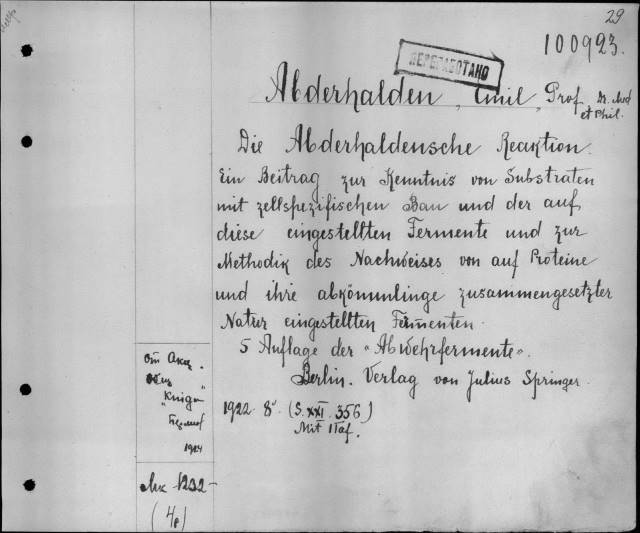 29
100923.
ПЕРЕРАБОТАНО
Abderhalden, Emil, Prof. Dr. Med
et Phil.
Die Abderhaldensche Reaktion.
Ein Beitrag zur Kenntnis von Substraten
mit zellspezifischen Bau und der auf
diese eingestellten Fermente und zur
Methodik des Nachweises von auf Proteine
und ihre abkömmlinge zusammengesetzter
Natur eingestellten Fermenten.
5 Auflage der "Abwehrfermente".
Berlin. Verlag von Julius Springer.
1922 8°. (S. XXI. 356)
Mit 1 Taf.
от Акц.
Общ. "
"Книга"
1924
1232
(4р)